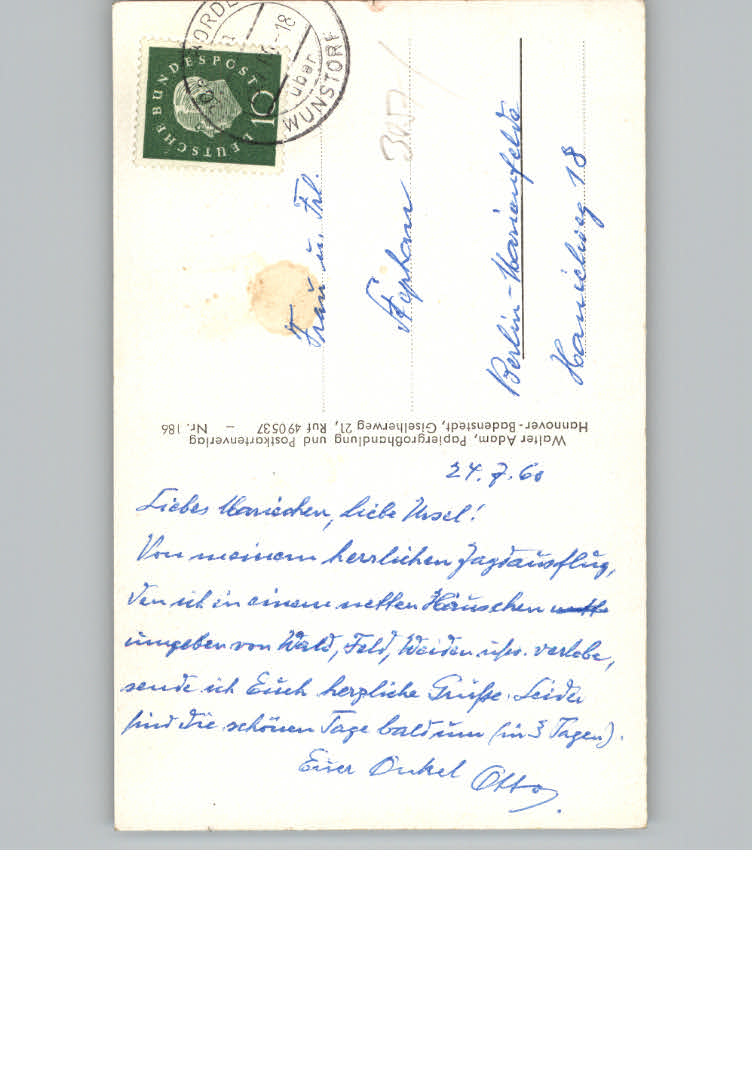 DEUTSCHE BUNDESPOST
10
über
WUNSTORF
-18
Frau u. Frl.
Stephan
Berlin-Marienfelde
18
Walter Adam, Papiergroßhandlung und Postkartenverlag
Hannover-Badenstedt, Giselherweg 21, Ruf 490537 – Nr. 186
24.7.60
Liebes Mariechen, liebe Ursel!
Von meinem herrlichen Jagdausflug,
den ich in einem netten Häuschen
umgeben von Wald, Feld, Weiden usw. verlebe,
sende ich Euch herzliche Grüße. Leider
sind die schönen Tage bald um (in 3 Tagen).
Euer Onkel Otto.